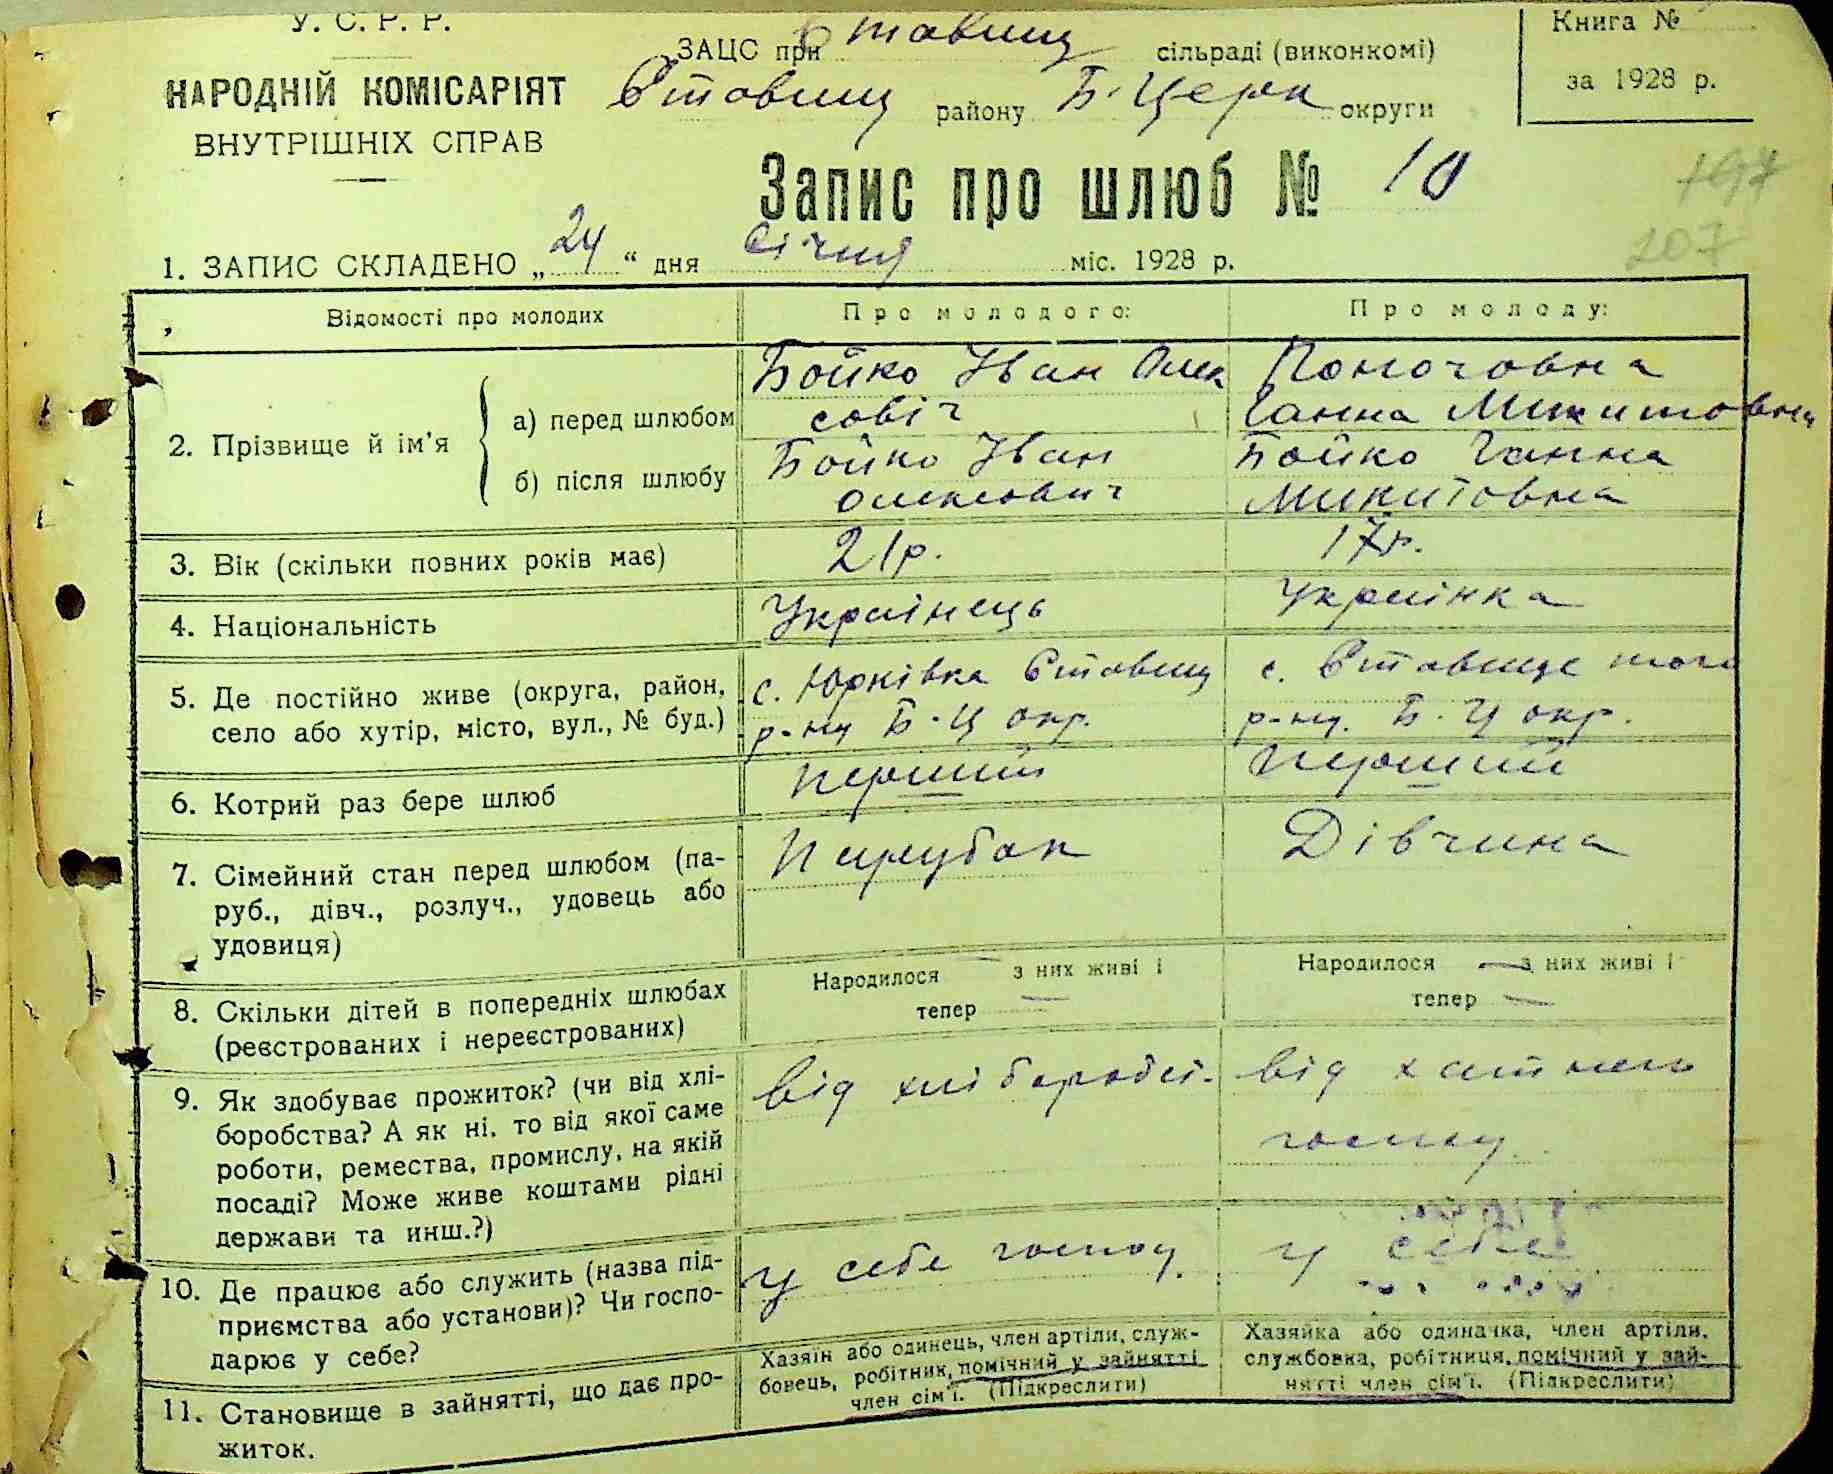 У. С. Р. Р.
НАРОДНІЙ КОМІСАРІЯТ
ВНУТРІШНІХ СПРАВ
ЗАЦС при Ставищ сільраді (виконкомі)
Ставищ району Б. Церк округи
Книга №
за 1928 р.
Запис про шлюб № 10
197
207
1. ЗАПИС СКЛАДЕНО „24“ дня січня міс. 1928 р.
Відомості про молодих
Про молодого:
Про молоду:
2. Прізвище й ім'я
а) перед шлюбом
Бойко Іван Олек
совіч
Ганна Микитовна
б) після шлюбу
Бойко Іван
Олексович
Бойко Ганна
Микитовна
3. Вік (скільки повних років має)
21р.
17р.
4. Національність
Українець
Українка
5. Де постійно живе (округа, район,
село або хутір, місто, вул., № буд.)
с. Юрківка Ставищ
р-ну Б. Ц окр.
с. Ставище того
р-ну. Б. Ц окр.
6. Котрий раз бере шлюб
перший
перший
7. Сімейний стан перед шлюбом (па-
руб., дівч., розлуч., удовець або
удовиця)
Парубок
Дівчина
8. Скільки дітей в попередніх шлюбах
(реєстрованих і нереєстрованих)
Народилося — з них живі і
тепер —
Народилося — з них живі і
тепер —
9. Як здобуває прожиток? (чи від хлі-
боробства? А як ні, то від якої саме
роботи, ремества, промислу, на якій
посаді? Може живе коштами рідні
держави та инш.?)
від хліборобст.
від хатнього
госпу
10. Де працює або служить (назва під-
приємства або установи)? Чи госпо-
дарює у себе?
у себе господ.
у себе
11. Становище в зайнятті, що дає про-
житок.
Хазяїн або одинець, член артіли, служ-
бовець, робітник, помічний у зайнятті
член сім'ї. (Підкреслити)
Хазяйка або одиначка, член артіли,
службовка, робітниця, помічний у зай-
нятті член сім'ї. (Підкреслити)